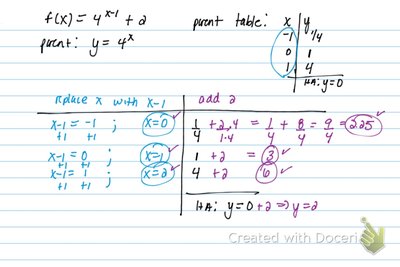 f(x) = 4^(x-1) + 2
parent: y = 4^x
parent table: x | y
-1 | 1/4
0 | 1
1 | 4
HA: y=0
replace x with x-1 | add 2
x-1 = -1 ; x=0 ✓
+1 +1
1/4 + 2·4/1·4 = 1/4 + 8/4 = 9/4 = 2.25 ✓
x-1 = 0 ; x=1 ✓
+1 +1
1 +2 = 3 ✓
x-1 = 1 ; x=2 ✓
+1 +1
4 +2 6 ✓
HA: y=0+2 ⇒ y=2
Created with Doceri